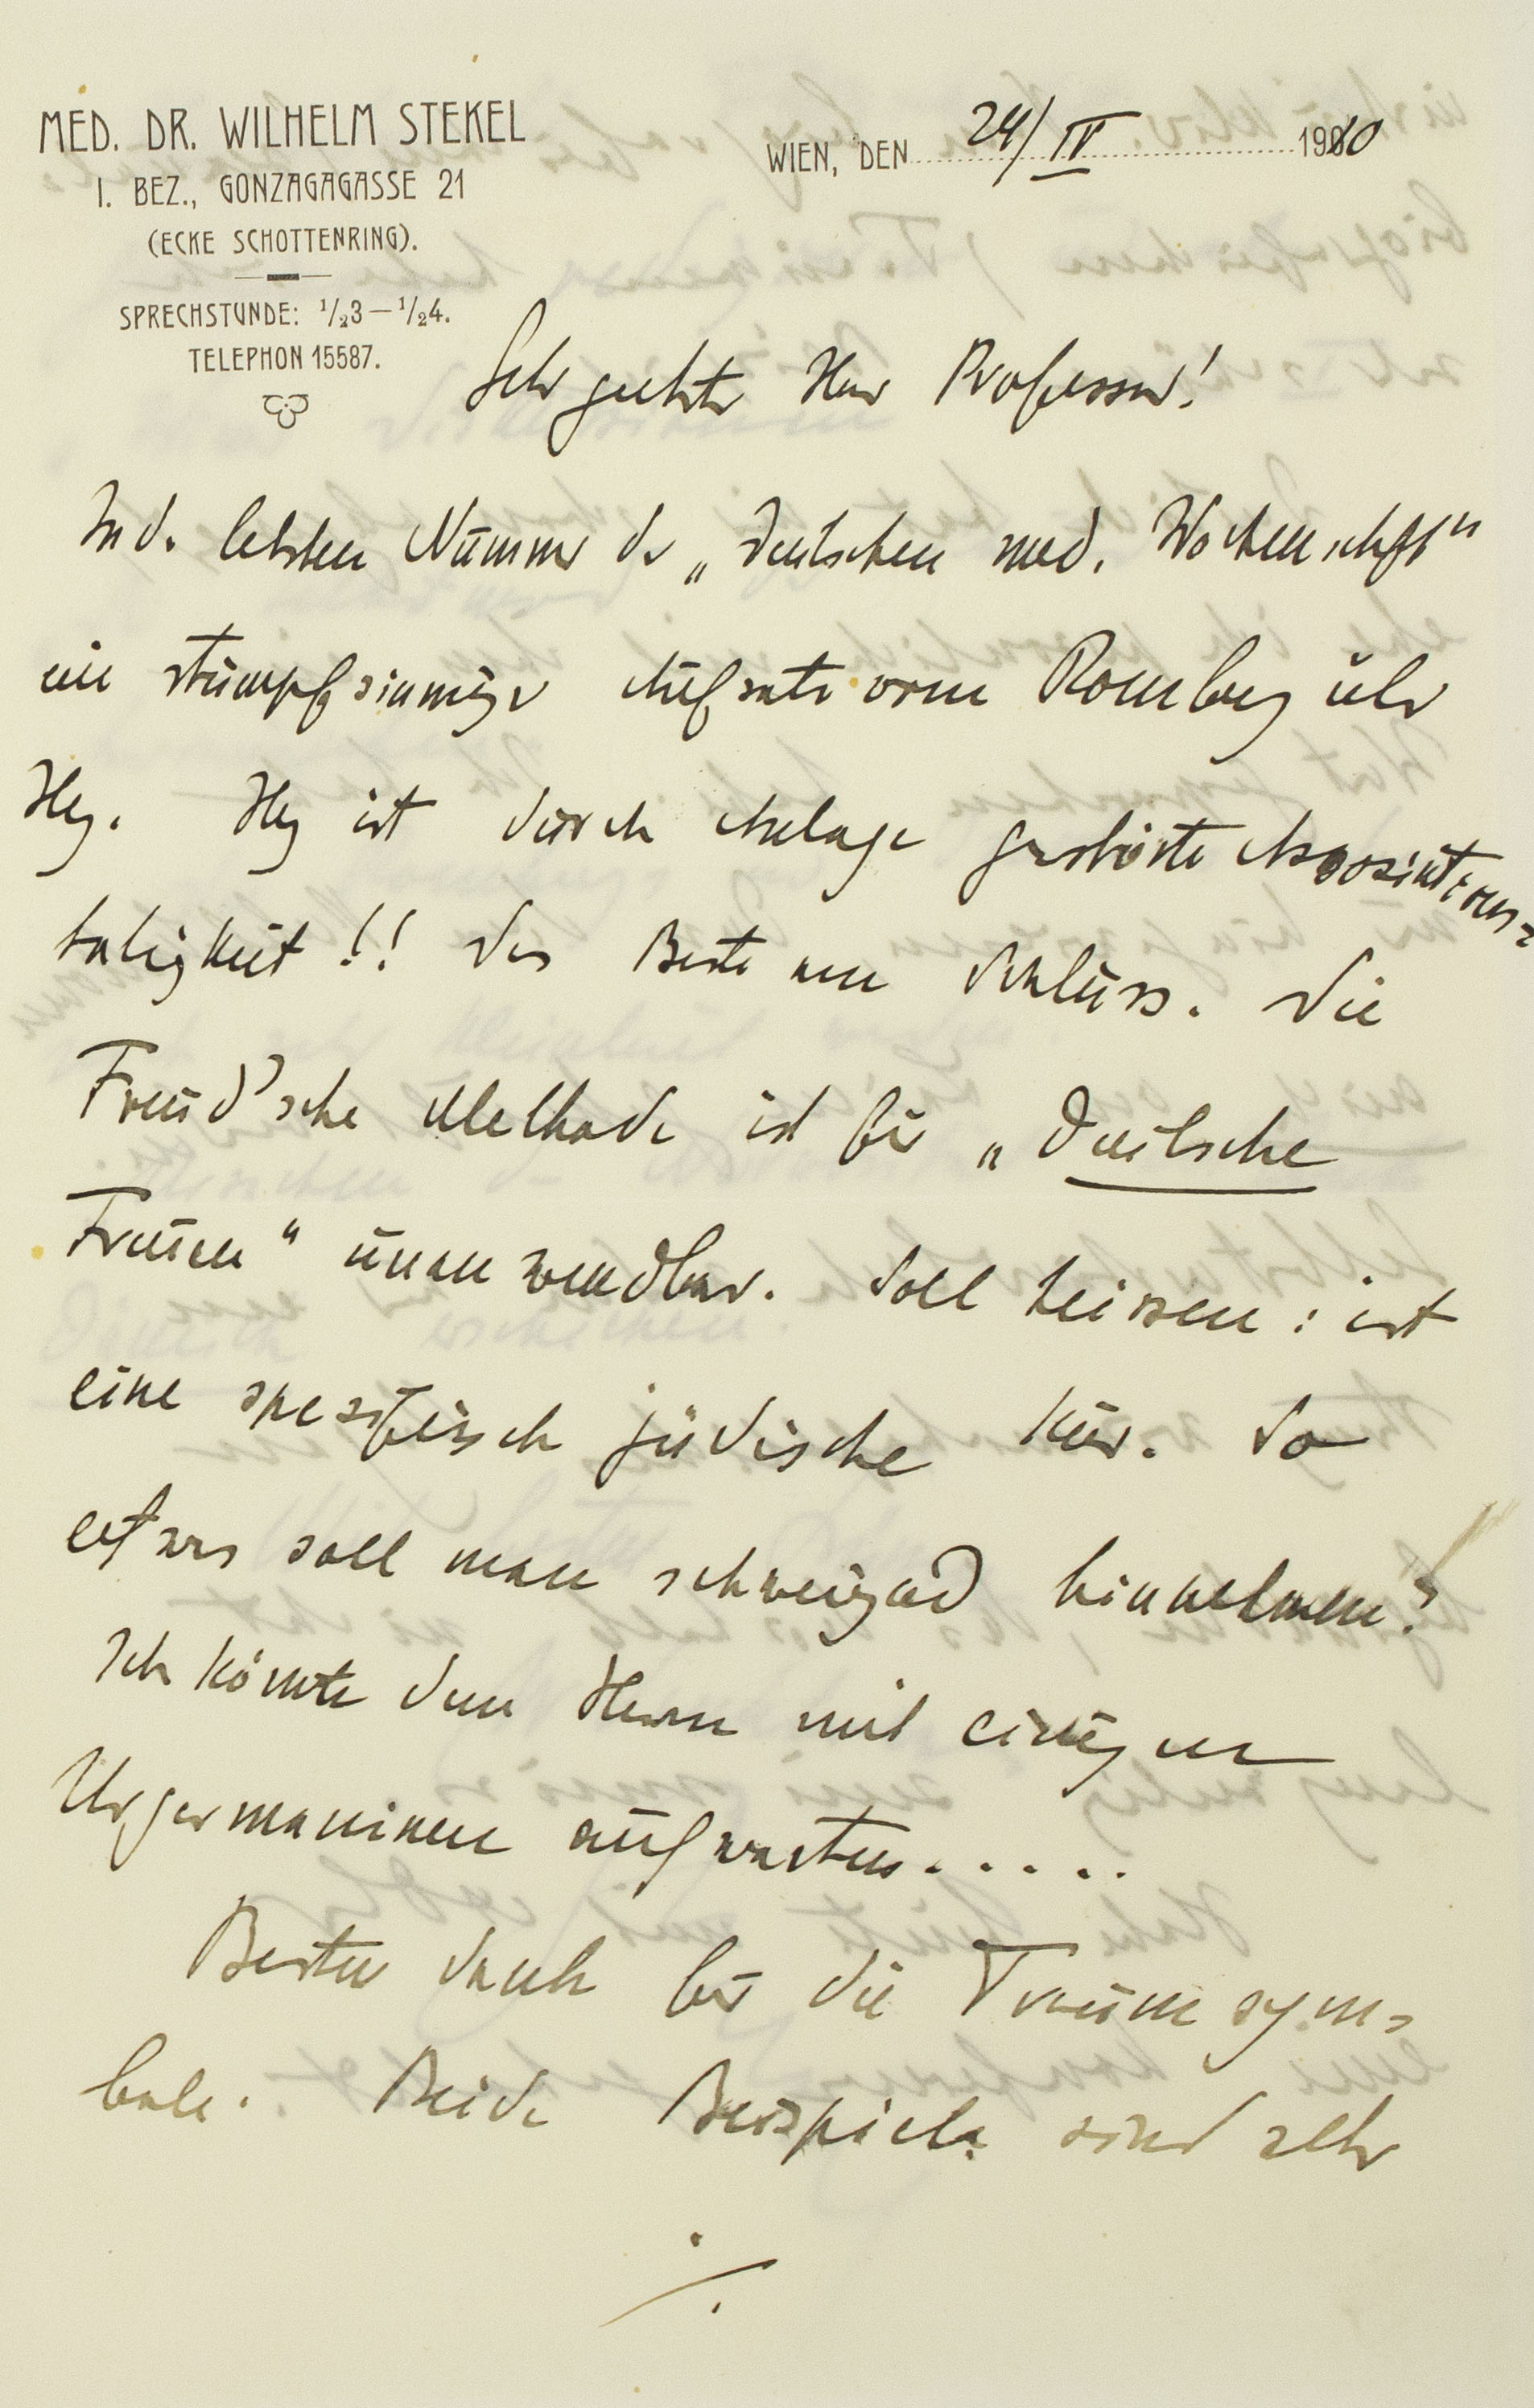 MED. DR. WILHELM STEKEL
I. BEZ., GONZAGAGASSE 21
(ECKE SCHOTTENRING).
SPRECHSTUNDE: 1/2 3 — 1/2 4.
TELEPHON 15587.
WIEN, DEN 24/IV 1910
Sehr geehrter Herr Professor!
In d. letzten Nummer der „Deutschen med. Wochenschft“
ein stumpfsinniger Aufsatz vom Romberg über
Hy. Hy ist durch Anlage gestörte Assoziations=
tätigkeit!! Das Beste am Schluss. Die
Freud'sche Methode ist für „Deutsche
Frauen“ unanwendbar. Soll heissen: ist
eine spezifisch jüdische Kur. So
etwas soll man schweigend hinnehmen?
Ich könnte dem Herrn mit einigen
Urgermaninen aufwarten.....
Besten Dank für die Traumsym=
bole. Beide Beispiele sind sehr
./.